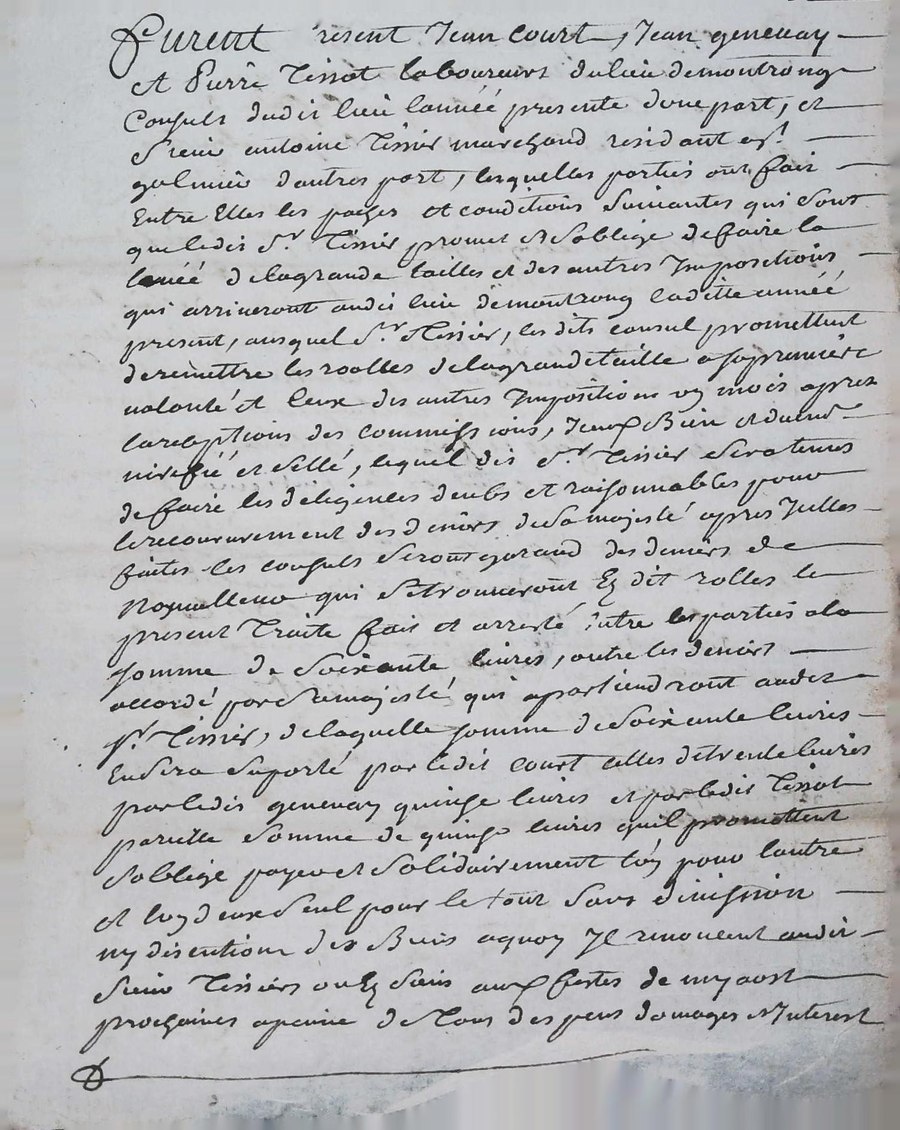 Furent resent Jean court, Jean genevay
et Pierre Tissot laboureurs du lieu de montrong
Consuls dudit lieu lannéé presente dune part, et
Sieur antoine Tissier marchand residant a St
galmier dautres part, lesquelles parties ont fait
Entre Elles les paches et conditions Suivantes qui Sont
que ledit Sr Tissier promet et soblige de faire la
levéé de la grande tailles et des autres Impositions
qui arriveront audit lieu de montrong laditte annéé
present, auquel Sr Tissier, les dits consul promettent
de remettre les roolles de la grande taille a sa premiere
volonté et Ceux des autres Impositions un mois apres
la reception des commissions, Iceux Bien et duem
verifié et Sellé, lequel dit Sr Tissier Sera tenus
de faire les deligences deubs et raisonnables pour
le recouvrement des deniers de Sa majesté apres Icelles
faites les consuls Seront garand des deniers de
qui Se trouveront Es dit rolles le
present Traite fait et arresté Entre les parties a la
somme de Soixante livres, outre les deniers
accordé par Sa majesté qui apartiendront audit
Sr Tissier, de laquelle somme de Soixante livres
En Sera Suporté par ledit Court celles de trente livres
par ledit genevay quinze livres et par ledit Tissot
pareille Somme de quinze livres quil promettent
soblige payer et Solidairement lun pour lautre
et lun deux Seul pour le tout Sans division
ny disention des Biens aquoy Il renoncent audit
Sieur Tissiers ou Es Siens aux festes de my aost
prochaines a peine de Tous despens domages et Interest